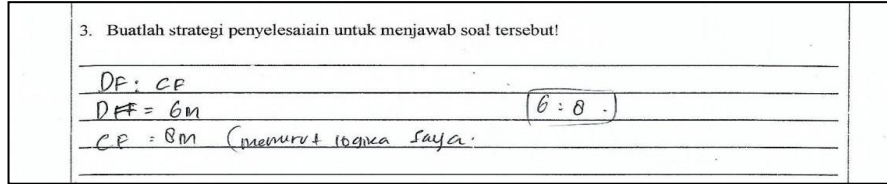 3. Buatlah strategi penyelesaiain untuk menjawab soal tersebut!
DF : CF
DF = 6m
6 : 8 .
CF = 8m (menurut logika saya.